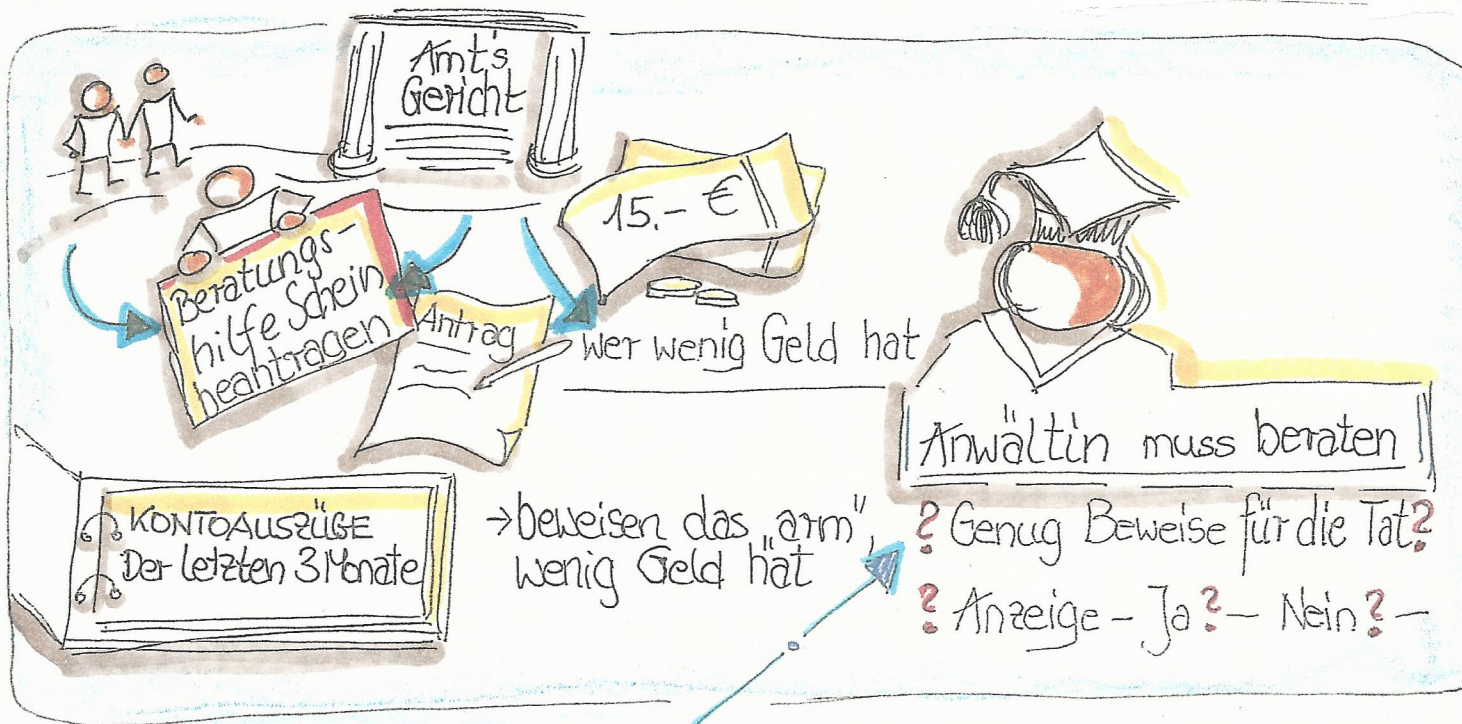 Amt's
Gericht
15.- €
Beratungs-
hilfe Schein
beantragen
Antrag
wer wenig Geld hat
Anwältin muss beraten
KONTOAUSZÜGE
Der letzten 3 Monate
→ beweisen das "arm",
wenig Geld hat
? Genug Beweise für die Tat?
? Anzeige - Ja? - Nein? -